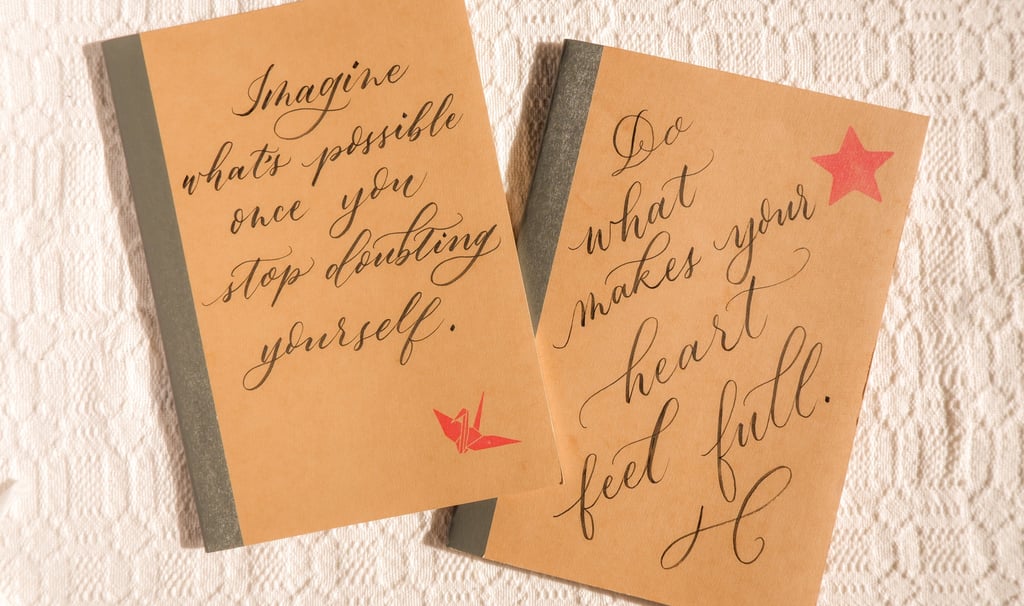 Imagine
what's possible
once you
stop doubting
yourself.
Do
what
makes your
heart
feel full.